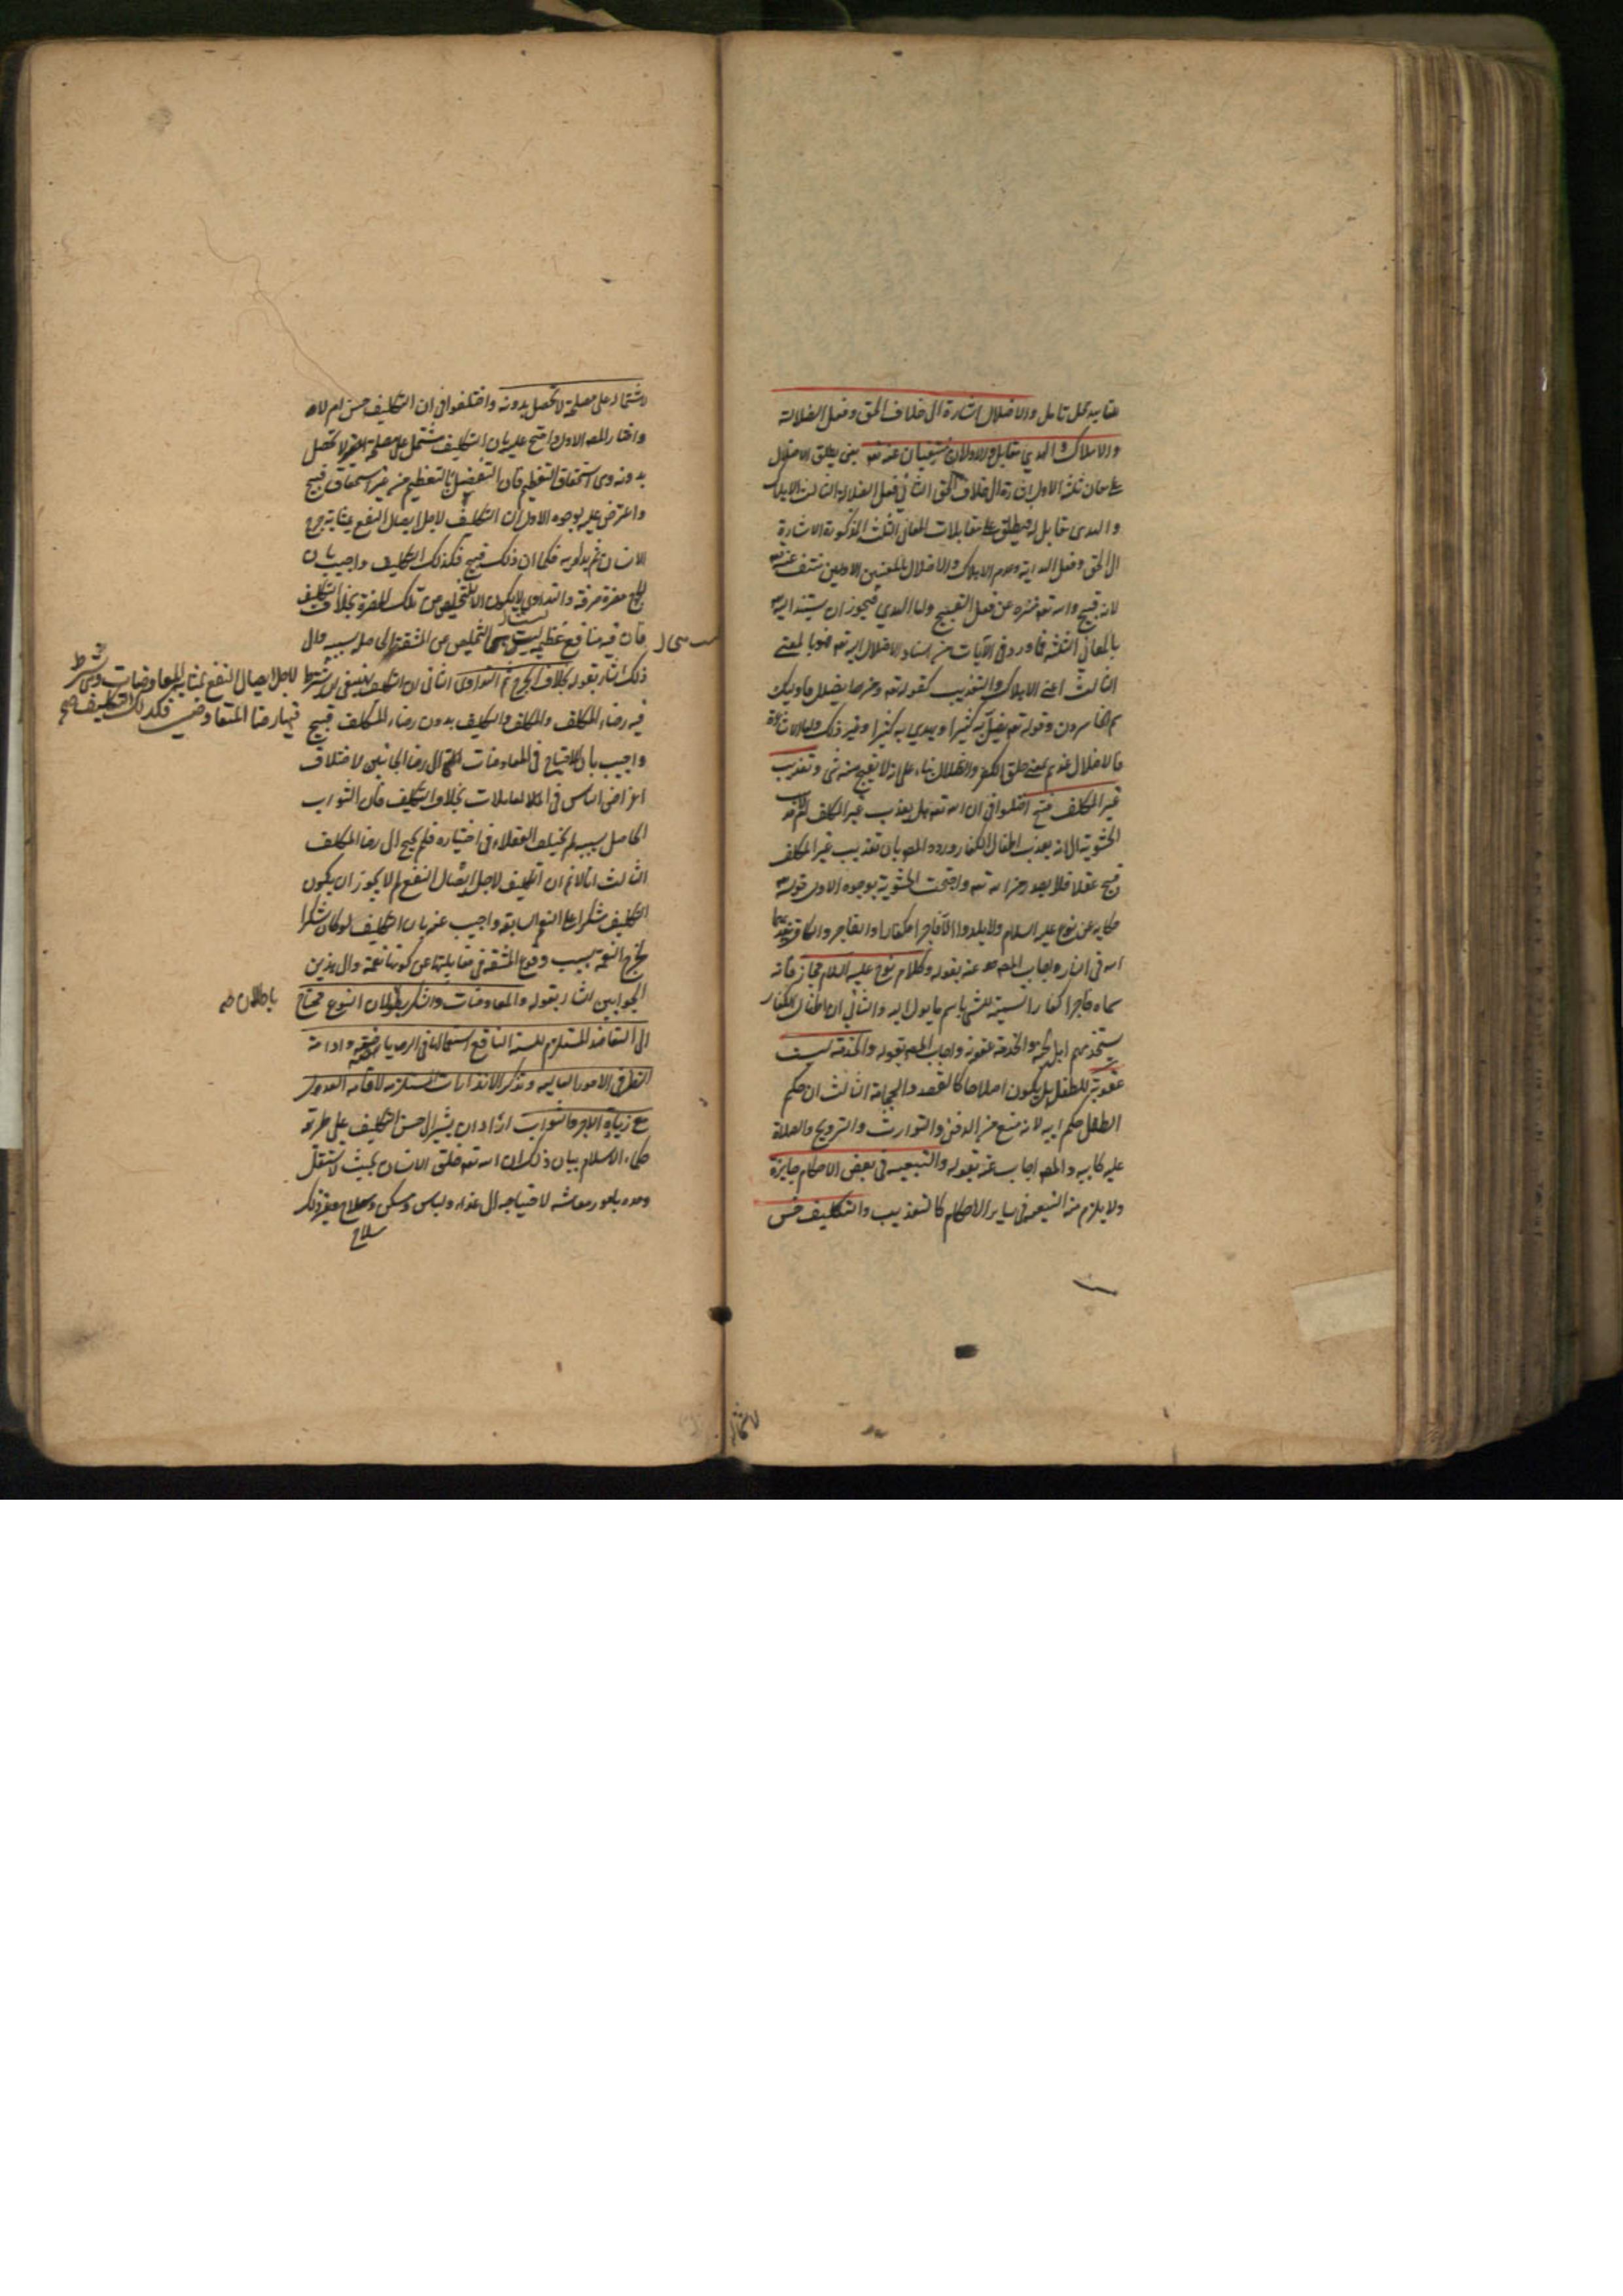 عقابه محل تامل والاضلال اشارة الى خلاف الحق وفعل الضلالة
والاهلاك والهدى مقابل والاولان منتفيان عنه تعه يعنى يطلق الاضلال
على معان ثلثة الاول اشارة الى خلاف الحق الثانى فعل الضلالة الثالث الاهلاك
والهدى مقابل له فيطلق على مقابلات المعانى الثلث المذكورة الاشارة
الى الحق وفعل الهداية وعدم الاهلاك والاضلال بالمعنيين الاولين منتف عنه تعه
لانه قبيح والله تعه منزه عن فعل القبيح واما الهدى فيجوز ان يستند اليه
بالمعانى الثلثة فما ورد فى الآيات من اسناد الاضلال اليه تعه فهو بالمعنى
الثالث اعنى الاهلاك والتعذيب كقوله تعه ومن يضلل فاوليك
هم الخاسرون وقوله تعه يضل به كثيرا ويهدى به كثيرا وغير ذلك واما الاشاعرة
فالاضلال عندهم بمعنى خلق الكفر والضلال بناء على انه لا يقبح منه شى وتعذيب
غير المكلف قبيح اختلفوا فى ان الله تعه هل يعذب غير المكلف فذهب
الحشوية الى انه يعذب اطفال الكفار ورده المصه بان تعذيب غير المكلف
قبيح عقلا فلا يصدر من الله تعه واحتجت الحشوية بوجوه الاول قوله تعه
حكاية عن نوح عليه السلام ولا يلدوا الا فاجرا كفارا والفاجر والكافر يعذبهما
الله فى النار واجاب المصه عنه بقوله وكلام نوح عليه السلام مجاز فانه
سماه فاجرا كفارا تسمية للشى باسم ما يول اليه والثانى ان اطفال الكفار
يستخدمهم اهل الجنة والخدمة عقوبة واجاب المصه بقوله والخدمة ليست
عقوبة للطفل بل يكون اصلاحا كالفصد والحجامة الثالث ان حكم
الطفل حكم ابيه لانه منع من الدفن والتوارث والتزويج والصلاة
عليه كابيه والمصه اجاب عنه بقوله والتبعية فى بعض الاحكام جايزة
ولا يلزم منه التبعية فى ساير الاحكام كالتعذيب والتكليف حسن
لاشتماله على مصلحة لا تحصل بدونه واختلفوا فى ان التكليف حسن ام لا
واختار المصه الاول واحتج عليه بان التكليف مشتمل على مصلحة لا تحصل
بدونه وهى استحقاق التعظيم فان التفضل بالتعظيم من غير استحقاق قبيح
واعترض عليه بوجوه الاول ان التكليف لاجل ايصال النفع بمثابة جرح
الانسان ثم يداويه فكما ان ذلك قبيح فكذلك التكليف واجيب بان
الجرح مضرة صرفة والتداوى لا يكون الا للتخليص من تلك المضرة بخلاف التكليف
فان فيه منافع عظيمة ليست التخليص من المشقة الحاصلة بسببه والى
ذلك اشار بقوله بخلاف الجرح ثم التداوى الثانى ان التكليف
لاجل ايصال النفع بمثابة المعاوضات وشرط
فيها رضا المتعاوضين فكذلك التكليف
فيه رضاء المكلف والمكلف والتكليف بدون رضاء المكلف قبيح
واجيب بان الاحتياج فى المعاوضات الى رضا الجانبين لاختلاف
اغراض الناس فى المعاملات بخلاف التكليف فان الثواب
الحاصل بسببه لم يختلف العقلاء فى اختياره فلم يحتج الى رضا المكلف
الثالث انا لانم ان التكليف لاجل ايصال النفع لم لا يجوز ان يكون
التكليف شكرا على النعم السابقة واجيب عنه بان التكليف لو كان شكرا
لخرج النعمة بسبب وقوع المشقة فى مقابلتها عن كونها نعمة والى هذين
الجوابين اشار بقوله والمعاوضات والشكر باطلان ولان النوع محتاج
الى التعاضد المستلزم للسنة النافع استعمالها فى الرياضة وادامة
النظر فى الامور العالية وتذكر الانذارات المستلزمة لاقامة العدل
مع زيادة الاجر والثواب اراد ان يشير الى حسن التكليف على طريقة
حكماء الاسلام بيان ذلك ان الله تعه خلق الانسان بحيث لا يستقل
وحده بامور معاشه لاحتياجه الى غذاء ولباس ومسكن وسلاح وغير ذلك
سلاح